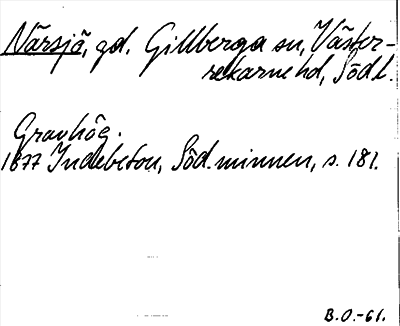 Närsjö, gd. Gillberga sn, Väster-
rekarne hd, Södl.
Gravhög.
1877 Indebetou, Söd. minnen, s. 181.
B.O.-61.